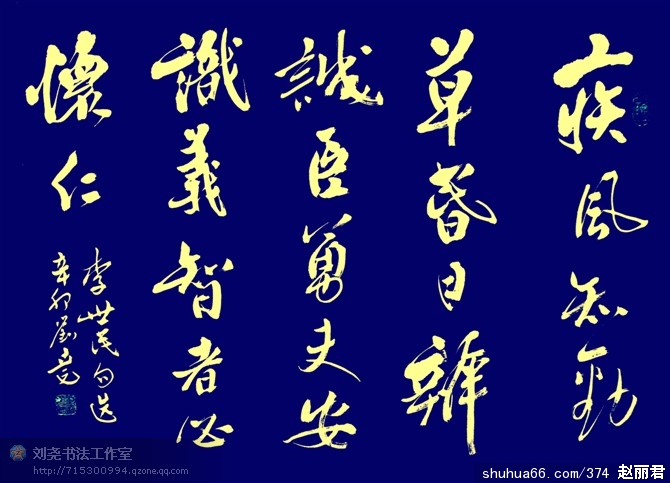 疾風知勁
草昏日辨
誠臣勇夫安
識義智者必
懷仁
李世民句选
辛卯劉堯
刘尧书法工作室
http://715300994.qzone.qq.com
shuhua66.com/374 赵丽君